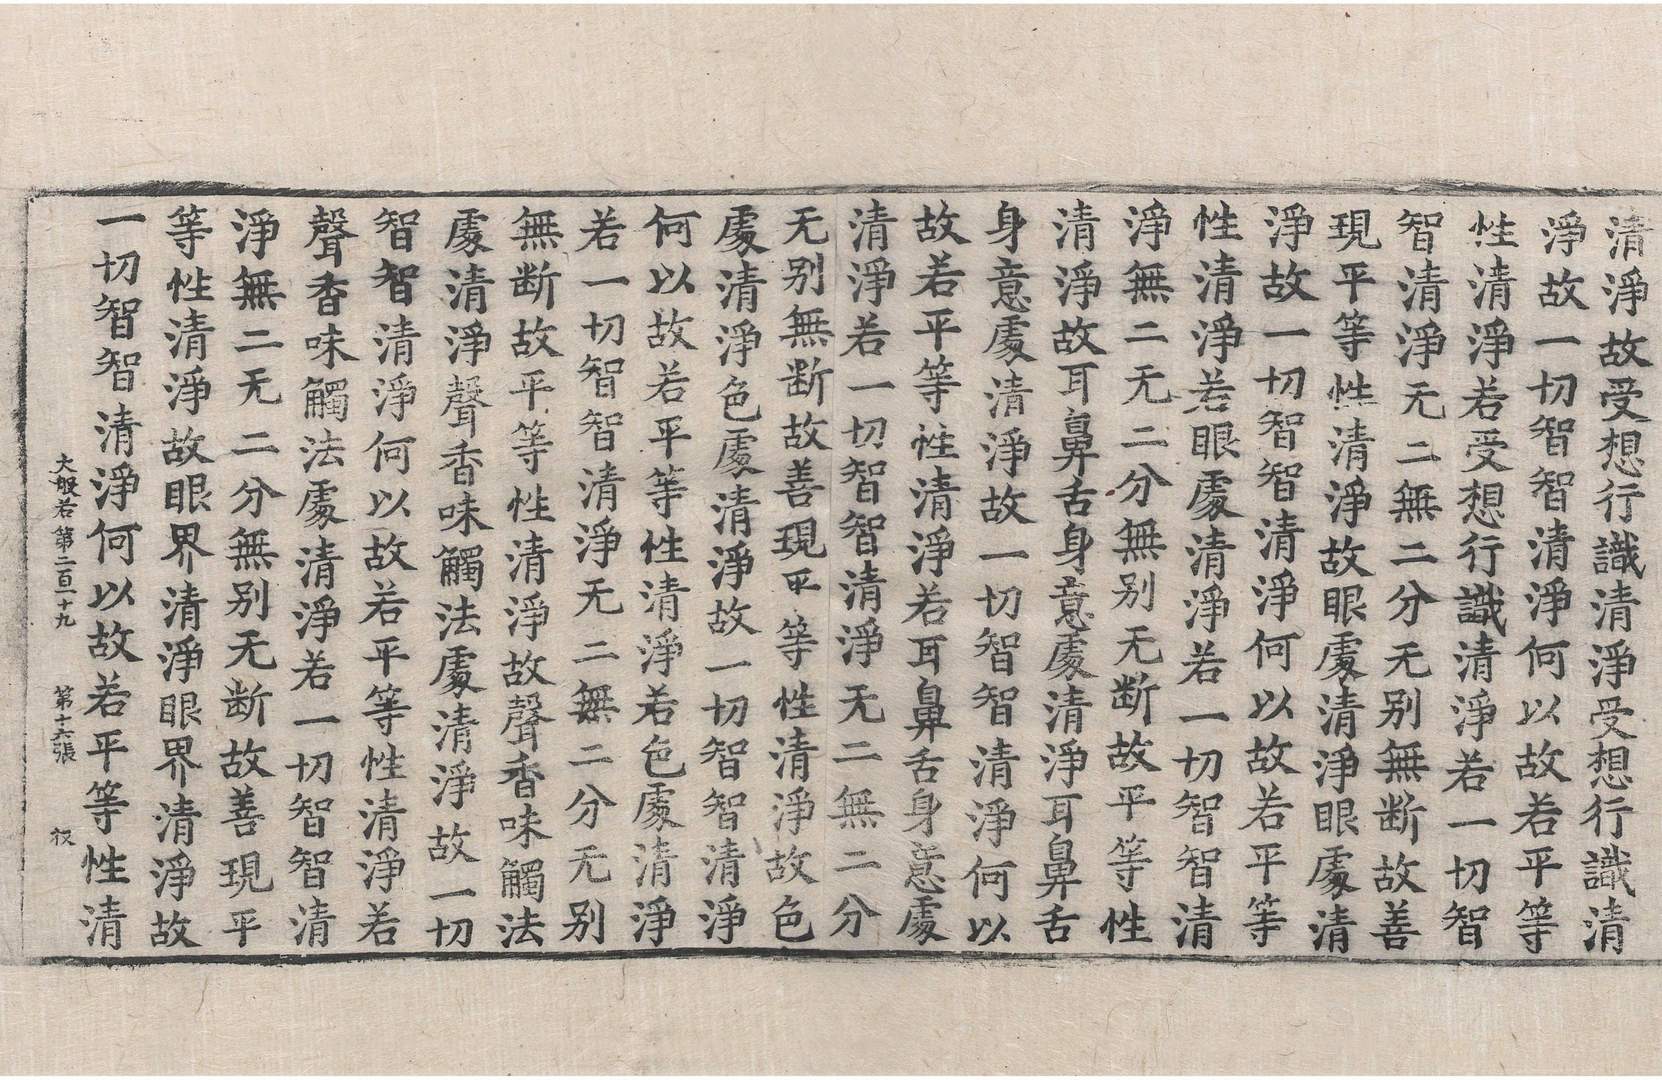 清淨故受想行識清淨受想行識清
淨故一切智智清淨何以故若平等
性清淨若受想行識清淨若一切智
智清淨无二無二分无别無断故善
現平等性清淨故眼處清淨眼處清
淨故一切智智清淨何以故若平等
性清淨若眼處清淨若一切智智清
淨無二无二分無别无断故平等性
清淨故耳鼻舌身意處清淨耳鼻舌
身意處清淨故一切智智清淨何以
故若平等性清淨若耳鼻舌身意處
清淨若一切智智清淨无二無二分
无别無断故善現平等性清淨故色
處清淨色處清淨故一切智智清淨
何以故若平等性清淨若色處清淨
若一切智智清淨无二無二分无别
無断故平等性清淨故聲香味觸法
處清淨聲香味觸法處清淨故一切
智智清淨何以故若平等性清淨若
聲香味觸法處清淨若一切智智清
淨無二无二分無别无断故善現平
等性清淨故眼界清淨眼界清淨故
一切智智清淨何以故若平等性清
大般若第二百一十九 第十六張